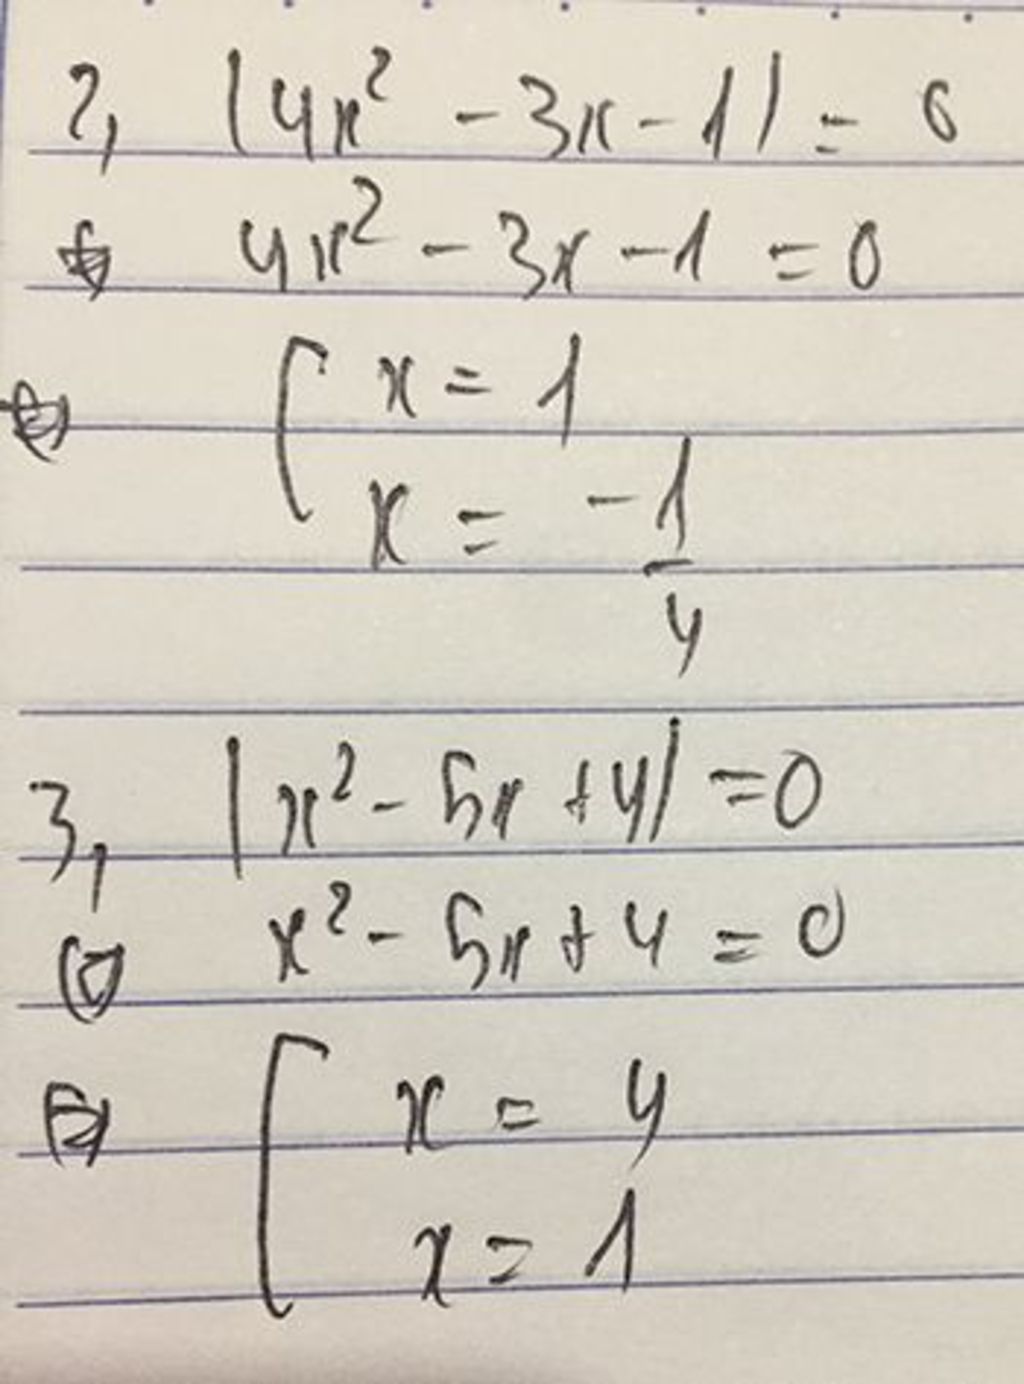 2, |4x² - 3x - 1| = 0
⇔ 4x² - 3x - 1 = 0
⇔ [ x = 1
x = -1/4
3, |x² - 5x + 4| = 0
x² - 5x + 4 = 0
⇔ [ x = 4
x = 1